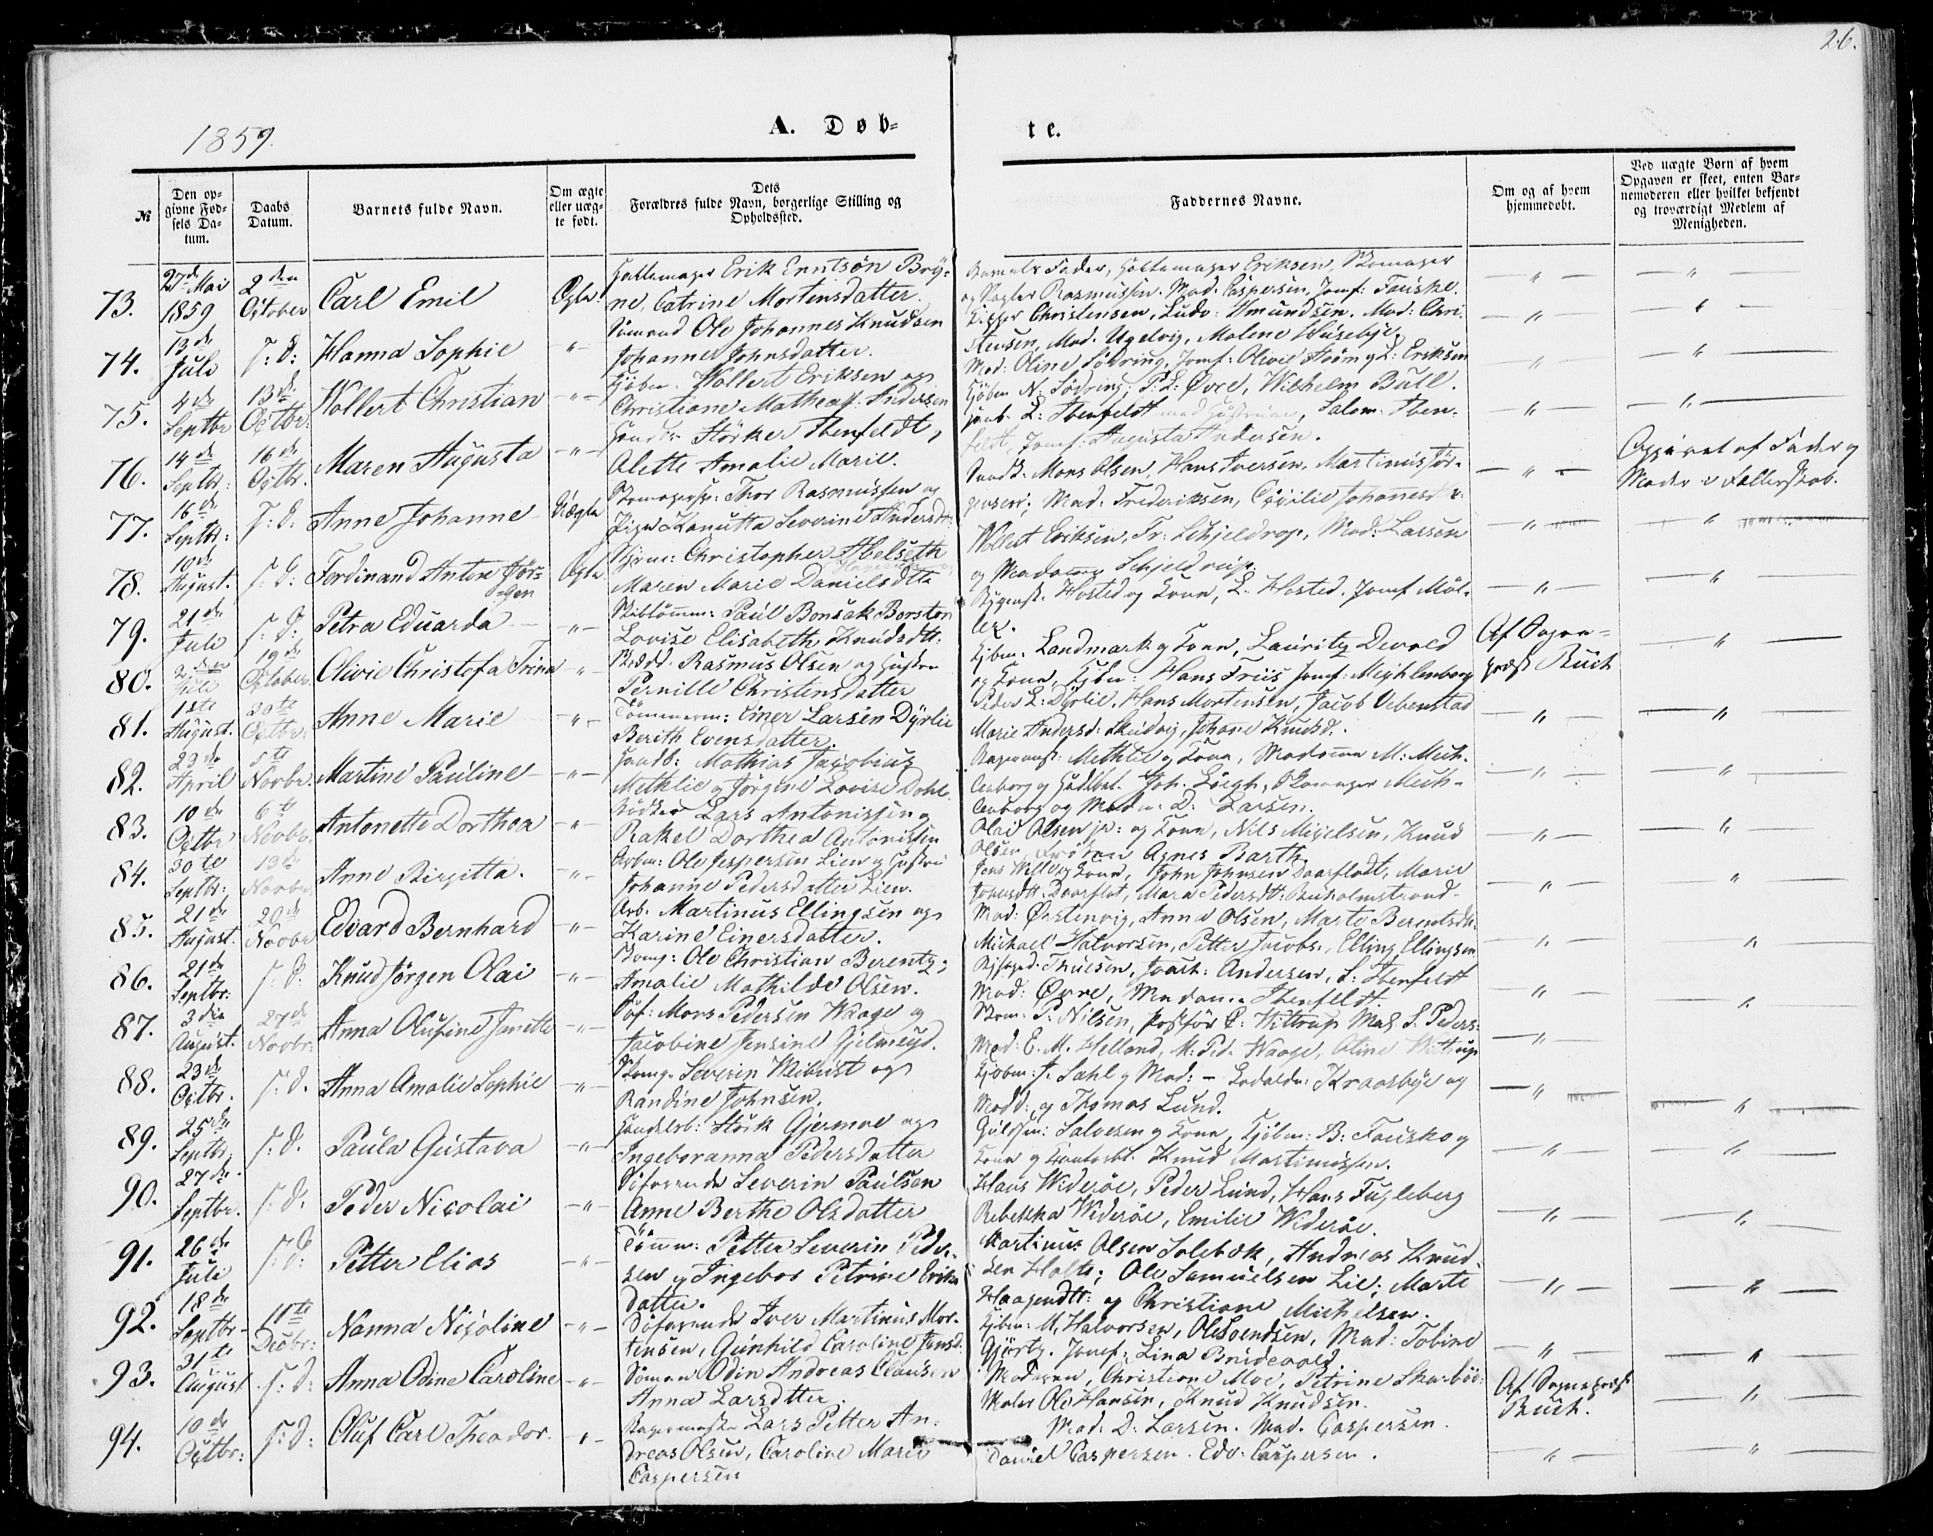 26.
1859.
A. Døb-
te.
№
Den op-
givne Fød-
sels Da-
tum.
Daabs
Datum.
Barnets fulde Navn.
Om ægte
eller uæg-
te født.
Dets
Forældres fulde Navn, borgerlige Stilling og
Opholdssted.
Faddernes Navne.
Om og af hvem
hjemmedøbt.
Ved uægte Børn af hvem
Opgaven er skeet, enten Bar-
nemoderen eller hvilket bekjendt
og troværdigt Medlem af
Menigheden.
73.
27de Mai
1859
2den
October
Carl Emil
Ægte
Erik
Catrine Mortensdatter.
Barnets Fader, Eriksen, Skomager
Rasmussen. Mad. Caspersen, Jomf: Fauske.
74.
13de
Jule
s: d:
Hanna Sophie
Sömand Ole Johannes Knudsen
Johanne Johnsdatter.
Christensen, Ludv: Amundsen. Mad: Chri-
stensen, Mad. Ugelvig, Malene Husebye
75.
4de
Septbr
13de
Octbr.
Vollert Christian
Kjöbm. Vollert Eriksen og
Christiane Mathea Andersen
Mad: Oline Södring, Jomf: Olevie Ström L: Eriksen
Kjöbm N: Södring, P: L: Øvre, Wilhelm Bull.
76.
14de
Septbr:
16de
Octbr.
Maren Augusta
Störker Ibenfeldt,
Alette Amalie Marie.
L: Ibenfeldt Salom: Iben-
feldt, Jomf: Augusta Andersen.
77.
16de
Septbr:
s: d:
Anne Johanne
Uægte
Thor Rasmussen og
Pige Kanutta Severine Andersdtt:
Mons Olsen, Hans Iversen, Martinus Jör-
gensen; Mad: Frederiksen, Cecilie Johannesdtr:
Opgivet af Fader og
Moder i Fællesskab.
78.
10de
August.
s: d:
Ferdinand Anton Jör-
gen
Ægte
Christopher Abelseth
Maren Marie Danielsdtt
Vollert Eriksen, Fr: Schjeldrop, Mad: Larsen
og Madame Schjeldrup.
79.
21de
Jule
s: d:
Petra Eduarda
Skibtömm: Paul Bonsak Borsten
Lovise Elisabeth Knudsdtt:
Hosted og Kone, L. Hosted. Jomf Mül-
ler.
80.
2den
Jule
19de
October
Olivie Christofa Trina
Rasmus Olsen og Hustru
Pernille Christensdatter
Kjbm. Landmark og Kone, Lauritz Devold
og Kone, Kjbm. Hans Friis Jomf:
Af Sogne-
præst Buch
81.
18de
August.
30te
Octbr.
Anne Marie
Tömmerm: Einer Larsen Dyrlie
Berith Evensdatter.
Peder L: Dyrlie. Hans Mortensen, Jacob Vebenstad
Marie Andersd: Skudvig, Johanne Knudsd.
82.
23de
April
5te
Novbr.
Martine Pauline
Mathias Jacobius
Methlie og Jörgine Lovise Dahl
Methlie og Kone, Madame M:
Joh. Leegh, Skomager
og Madm. D: Larsen.
83.
10de
Octbr
6te
Novbr.
Antonette Dorthea
Bödker Lars Antonissen og
Rakel Dorthea Antonissen
Olaus Olsen jr: og Kone, Nils Mikelsen, Knud
Olsen, Fröken Agnes Barth
84.
30te
Septbr:
13de
Novbr.
Anne Birgitta.
Arbm: Ole Jespersen Lien og Hustru
Johanne Pedersdatter Lien.
Jens og Kone, John Johnsen Daarflodt, Marie
Daarflot, Mara Pedersdt:
85.
21de
August.
20de
Novbr
Edvard Bernhard
Arb. Martinus Ellingsen og
Karine Einersdatter.
Mad: Örstenvig, Anna Olsen, Marte Berntsdtr.
Michael Halvorsen, Petter Jacobs:, Elling Ellingsen
86.
21de
Septbr:
s: d:
Knud Jörgen Olai
Skomg: Ole Christian Berentz;
Amalie Mathilde Olsen.
Thuesen, Andersen, S: Ibenfeldt
Mad: Øvre, Madame Ibenfeldt.
87.
3die
August.
27de
Novbr.
Anna Olufine Janette
Mons Pedersen Waage og
Jacobine Jensine
P: Nilsen, Wittrup Mad. S. Peders-
Mad: E. M. Helland, M: Ped. Waage, Oline Wittrup
88.
23de
Octbr.
s: d.
Anna Amalie Sophie
Skomg. Severin og
Randine Johnsen.
Kjöbm: J. Dahl og Mad: - Kraasbye og
Madd: og Thomas Lund.
89.
25de
Septbr.
s: d.
Paula Gustava
Handelsb: Störk Gjermoe og
Ingeboranna Pedersdatter
Guldsm: Salvesen og Kone, Kjöbm: B: Fauske og
Kone og Knud Martinussen.
90.
27de
Septbr.
s: d:
Peder Nicolai
Söfarende Severin Paulsen
Anne Berthe Olsdatter
Hans Wideröe, Peder Lund, Hans Fugleberg
Rebekka Wideröe, Emilie Wideröe.
91.
26de
Jule
s: d:
Petter Elias
Tömm: Petter Severin Peder-
sen og Ingebor Petrine Eriks
datter.
Martinus Olsen Solebak, Andreas Knud-
sen Holte; Ole Samuelsen Lie; Marte
Haagensdtt: og Christiane Michelsen.
92.
18de
Septbr
11te
Decbr:
Nanna Nicoline
Söfarende Iver Martinus Mor-
tensen, Gunhild Caroline Jensd.
Kjbm: M. Halvorsen, Ole Svendsen, Mad: Tobine
Gjörtz. Jomf: Lina Brudevold
93.
31te
August
s: d:
Anna Odine Caroline
Sömand Odin Andreas Clausen
Anna Larsdtter.
Christiane Moe, Petrine Skarböe
Maler Ole Hansen, Knud Knudsen.
Af Sognepræst
Buch.
94.
10de
Octbr:
s: d:
Oluf Carl Theodor.
Lars Petter An-
dreas Olsen, Caroline Marie
Caspersen
Mad: D: Larsen. Mad. Caspersen.
Daniel Caspersen. Edv: Caspersen.